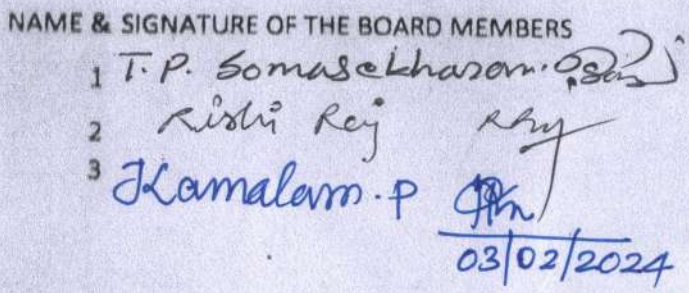 NAME & SIGNATURE OF THE BOARD MEMBERS
1 T. P. Somasekharan.
2 Rishi Raj
3 Kamalam. P
03/02/2024